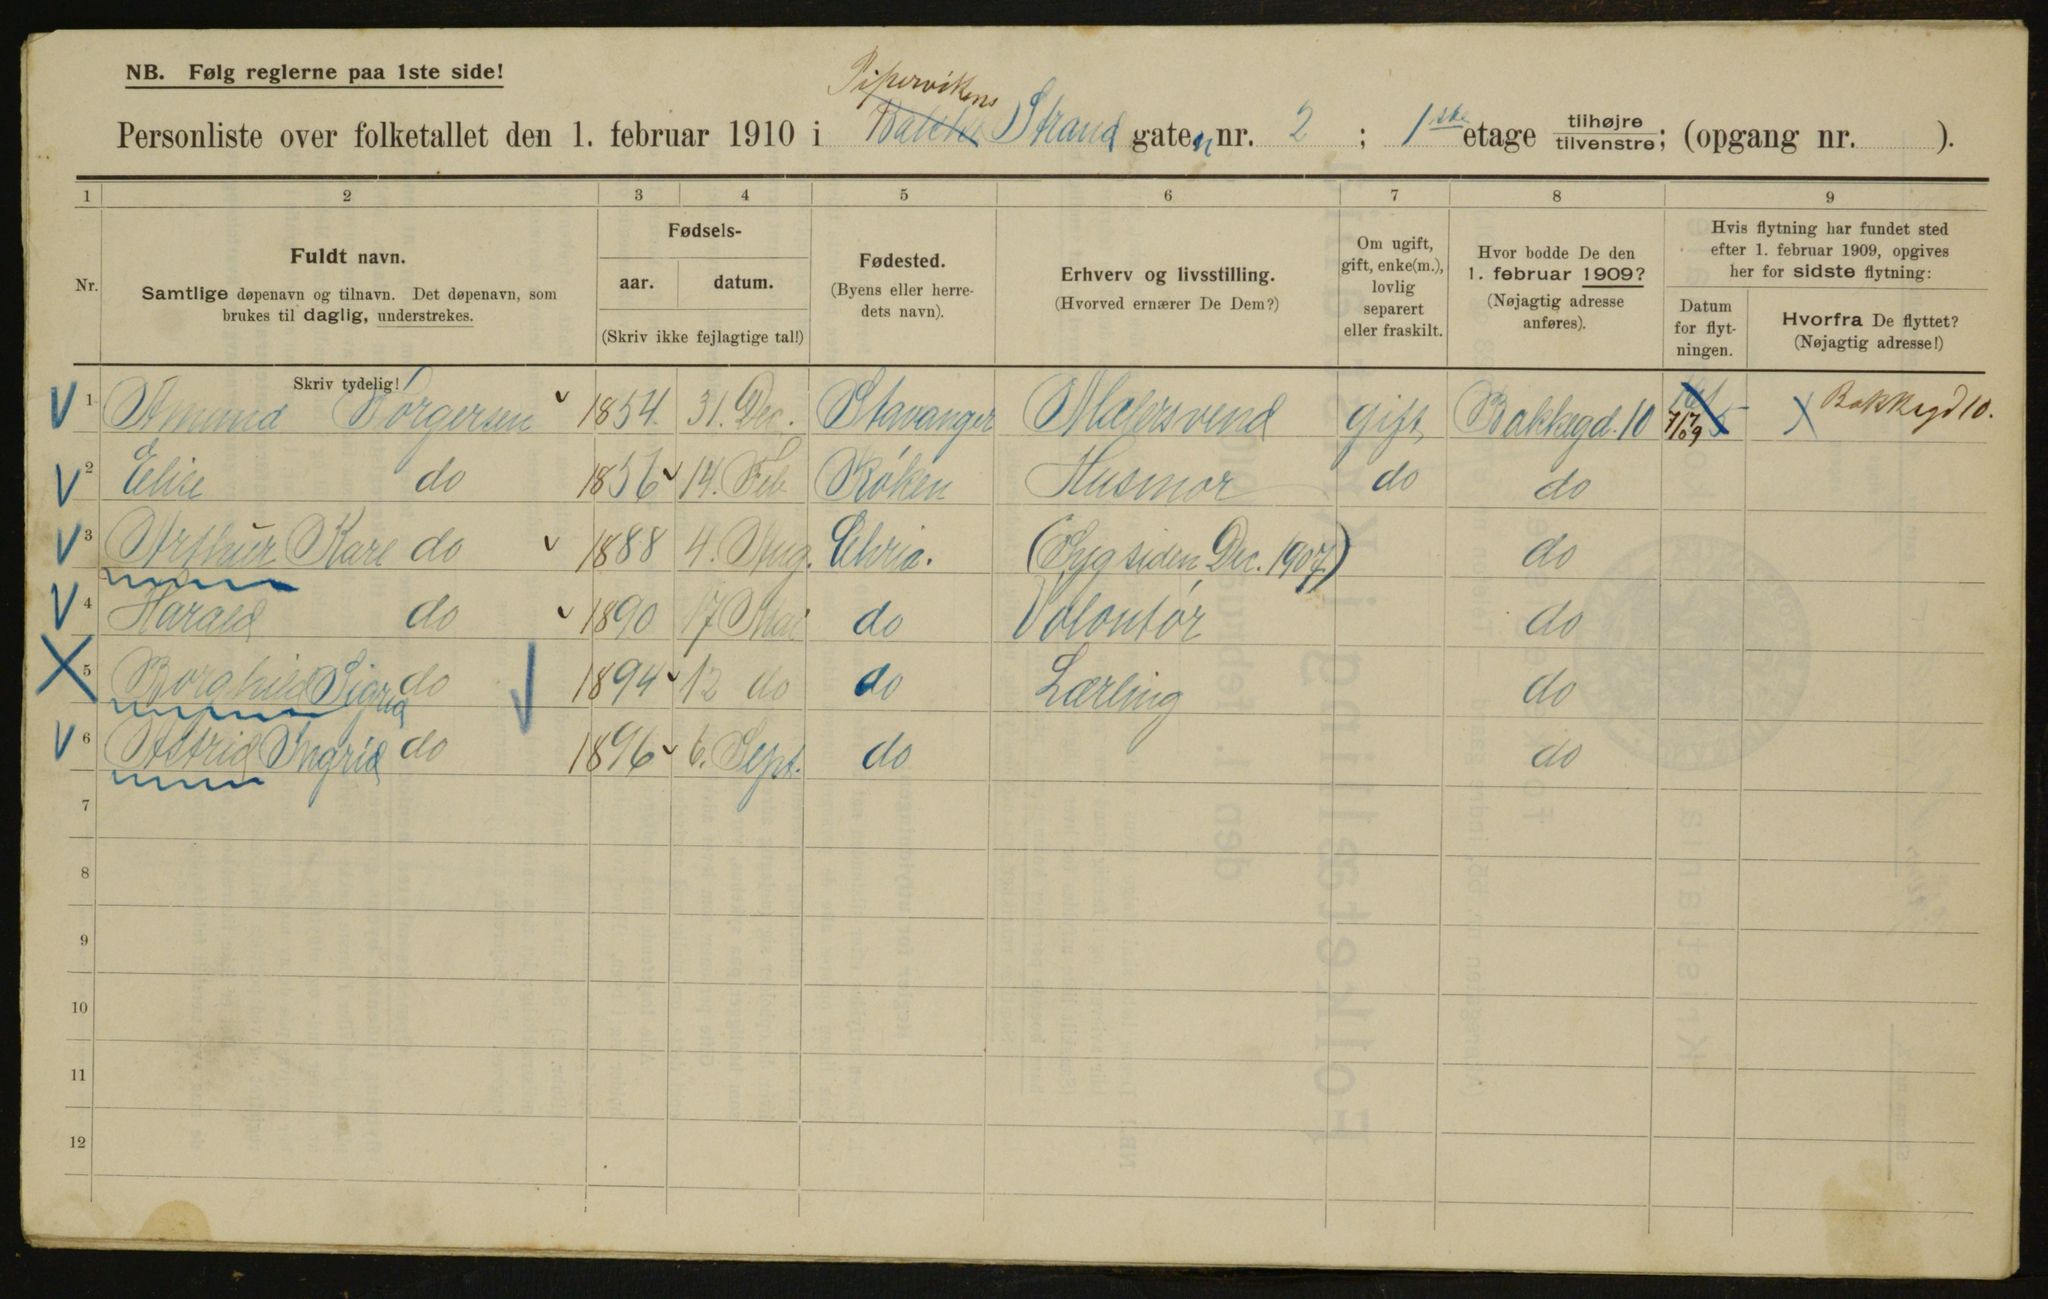 NB. Følg reglerne paa 1ste side!
Pipervikens
Personliste over folketallet den 1. februar 1910 i Strand gaten nr. 2 ; 1ste etage tilhøjre/tilvenstre; (opgang nr. ).
1 2 3 4 5 6 7 8 9
Nr.
Fuldt navn.
Samtlige døpenavn og tilnavn. Det døpenavn, som
brukes til daglig, understrekes.
Skriv tydelig!
Fødsels-
aar. datum.
(Skriv ikke fejlagtige tal!)
Fødested.
(Byens eller herre-
dets navn).
Erhverv og livsstilling.
(Hvorved ernærer De Dem?)
Om ugift,
gift, enke(m.),
lovlig
separert
eller fraskilt.
Hvor bodde De den
1. februar 1909?
(Nøjagtig adresse
anføres).
Hvis flytning har fundet sted
efter 1. februar 1909, opgives
her for sidste flytning:
Datum
for flyt-
ningen.
Hvorfra De flyttet?
(Nøjagtig adresse!)
1 Amund Børgersen 1854 31. Dec. Stavanger Malersvend gift Bakkegd. 10 Bakkegd 10.
2 Elise do 1856 14. Feb Røken Husmor do do
3 Arthur Kare do 1888 4. Aug. Chria. (Syg siden Dec. 1907) do
4 Harald do 1890 17 Mai do Volontør do
5 Borghild Sigrid do 1894 12 do do Lærling do
6 Astrid Ingrid do 1896 6. Sept. do do
7
8
9
10
11
12